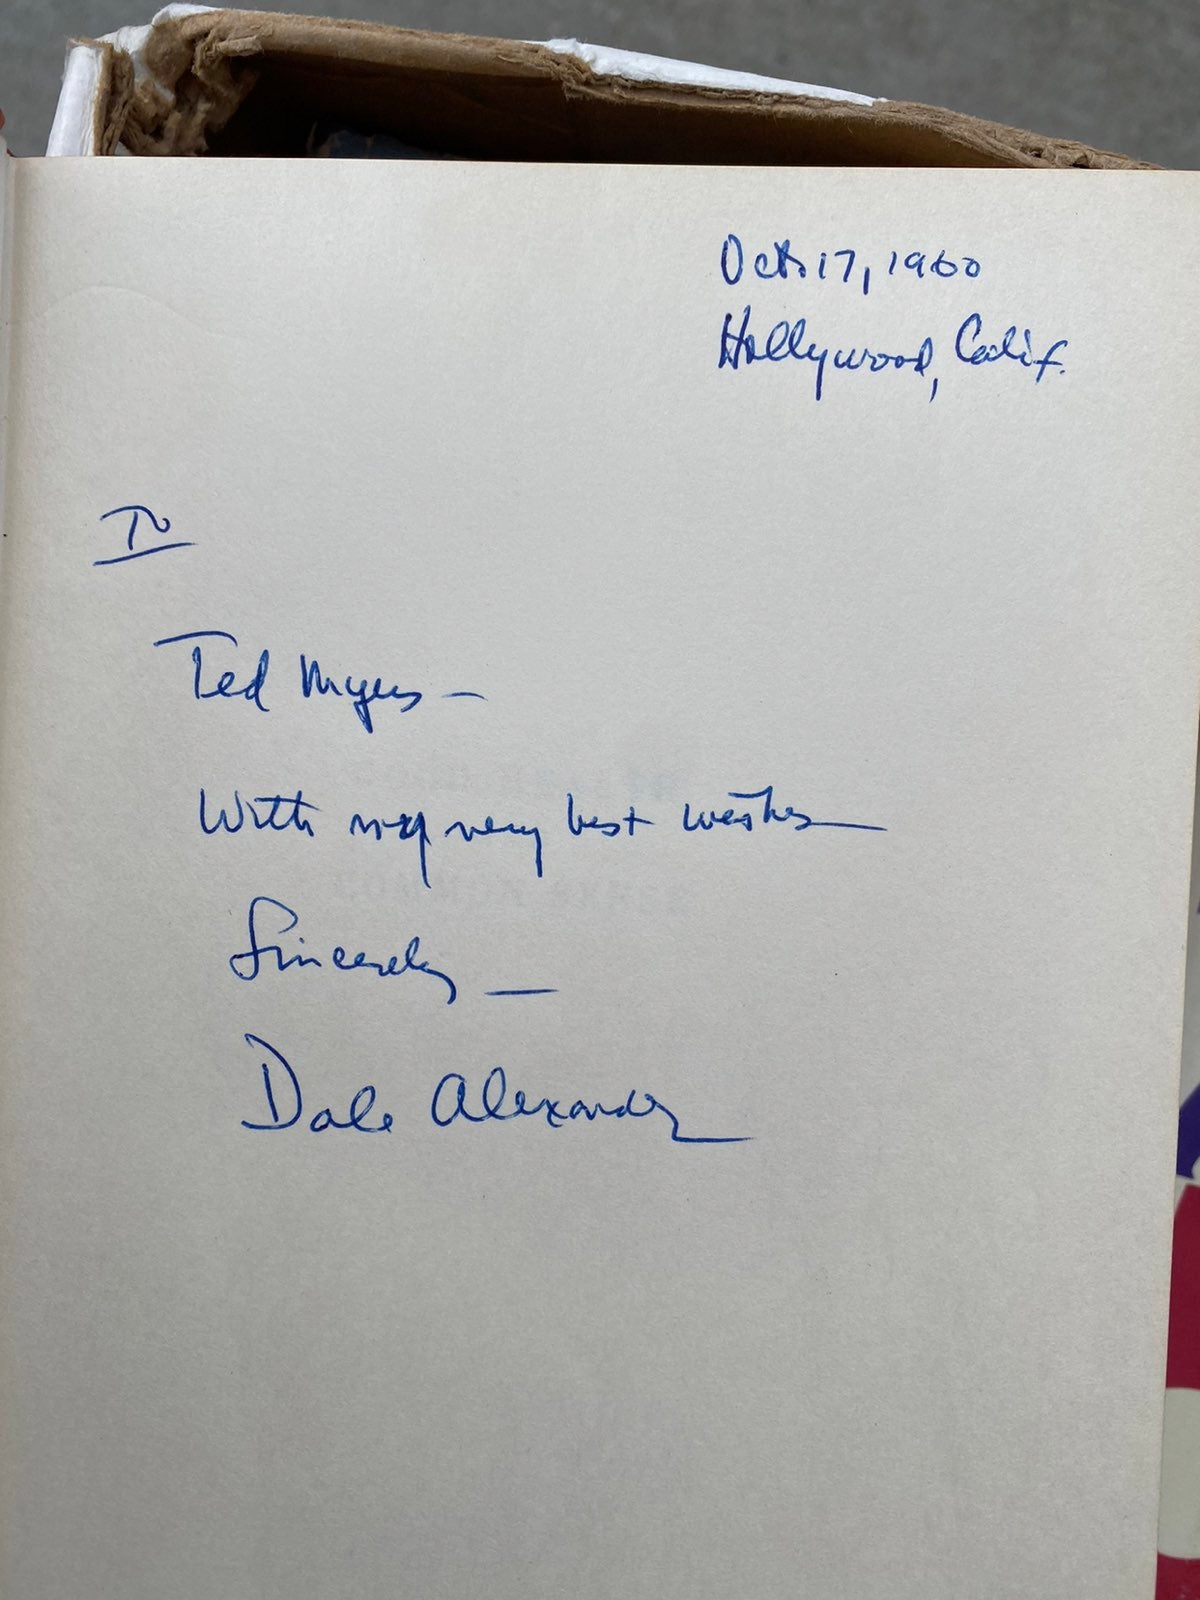 Oct. 17, 1960
Hollywood, Calif.
To
Ted Myers —
With my very best wishes
Sincerely —
Dale Alexander
COMMON SENSE